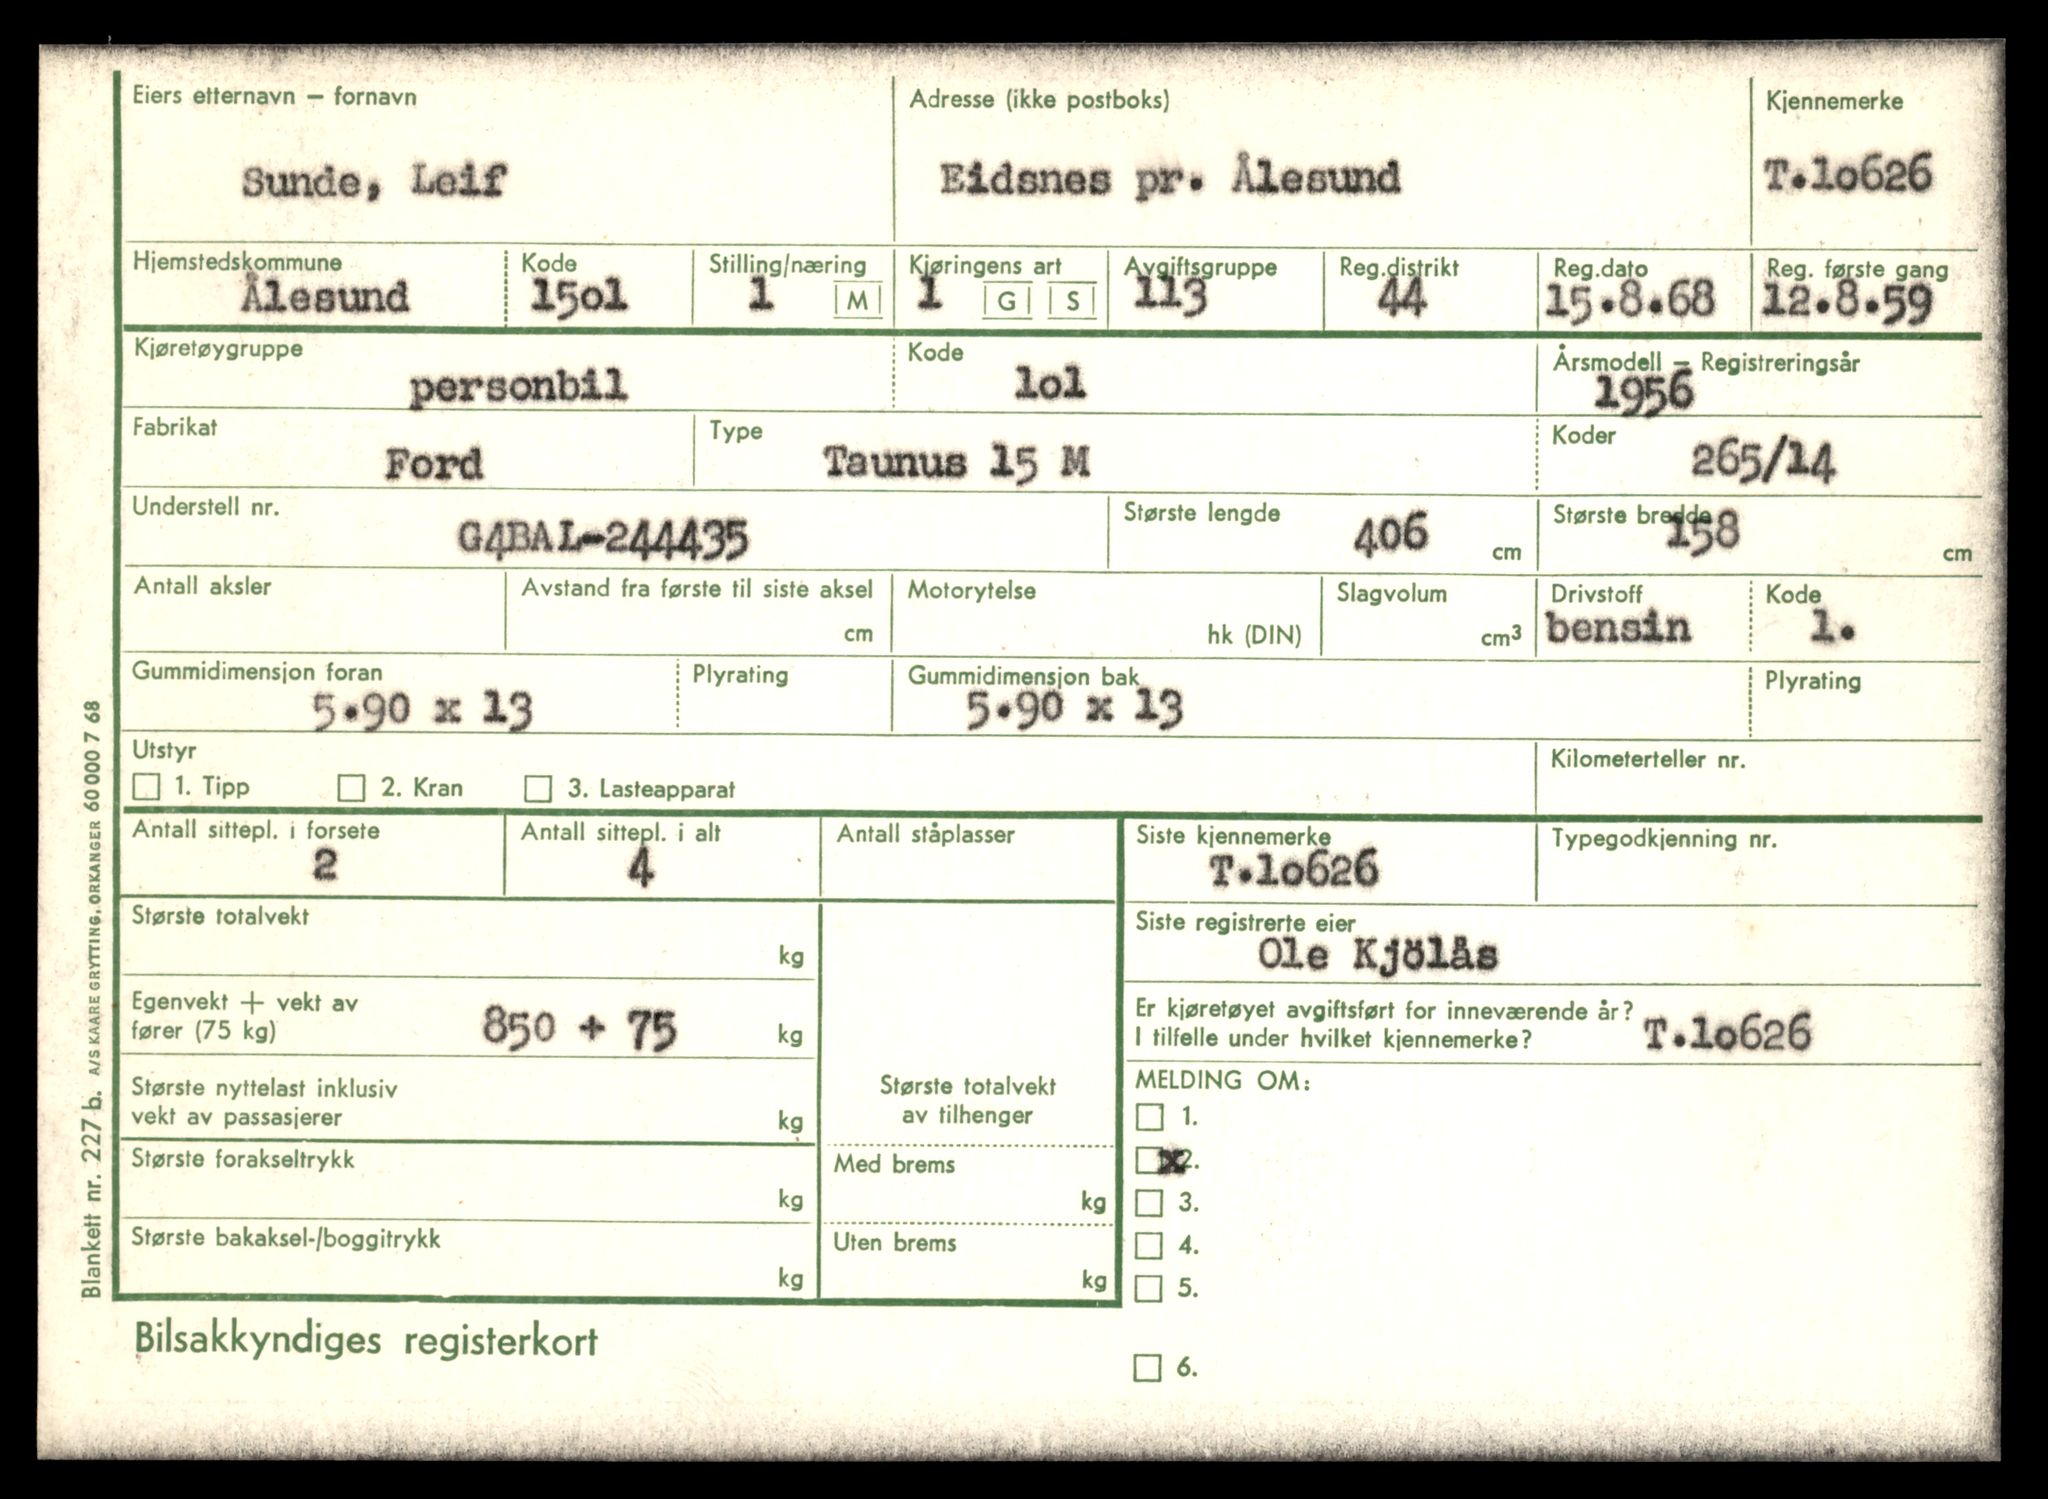 Eiers etternavn – fornavn
Adresse (ikke postboks)
Kjennemerke
Sunde, Leif
Eidsnes pr. Ålesund
T.lo626
Hjemstedskommune
Kode
Stilling/næring
Kjøringens art
Avgiftsgruppe
Reg.distrikt
Reg.dato
Reg. første gang
Ålesund
15ol
1
M
1
G
S
113
44
15.8.68
12.8.59
Kjøretøygruppe
Kode
Årsmodell – Registreringsår
personbil
lol
1956
Fabrikat
Type
Koder
Ford
Taunus 15 M
265/14
Understell nr.
Største lengde
Største bredde
G4BAL-244435
406
cm
158
cm
Antall aksler
Avstand fra første til siste aksel
Motorytelse
Slagvolum
Drivstoff
Kode
cm
hk (DIN)
cm³
bensin
1.
Gummidimensjon foran
Plyrating
Gummidimensjon bak
Plyrating
5.90 x 13
5.90 x 13
Utstyr
Kilometerteller nr.
1. Tipp
2. Kran
3. Lasteapparat
Antall sittepl. i forsete
Antall sittepl. i alt
Antall ståplasser
Siste kjennemerke
Typegodkjenning nr.
2
4
T.lo626
Største totalvekt
kg
Siste registrerte eier
Ole Kjölås
Egenvekt + vekt av
fører (75 kg)
850 + 75
kg
Er kjøretøyet avgiftsført for inneværende år?
I tilfelle under hvilket kjennemerke?
T.lo626
Største nyttelast inklusiv
vekt av passasjerer
kg
Største totalvekt
av tilhenger
MELDING OM:
1.
x2.
3.
4.
5.
6.
Største forakseltrykk
kg
Med brems
kg
Største bakaksel-/boggitrykk
kg
Uten brems
kg
Bilsakkyndiges registerkort
Blankett nr. 227 b. A/S KAARE GRYTTING, ORKANGER 60 000 7 68